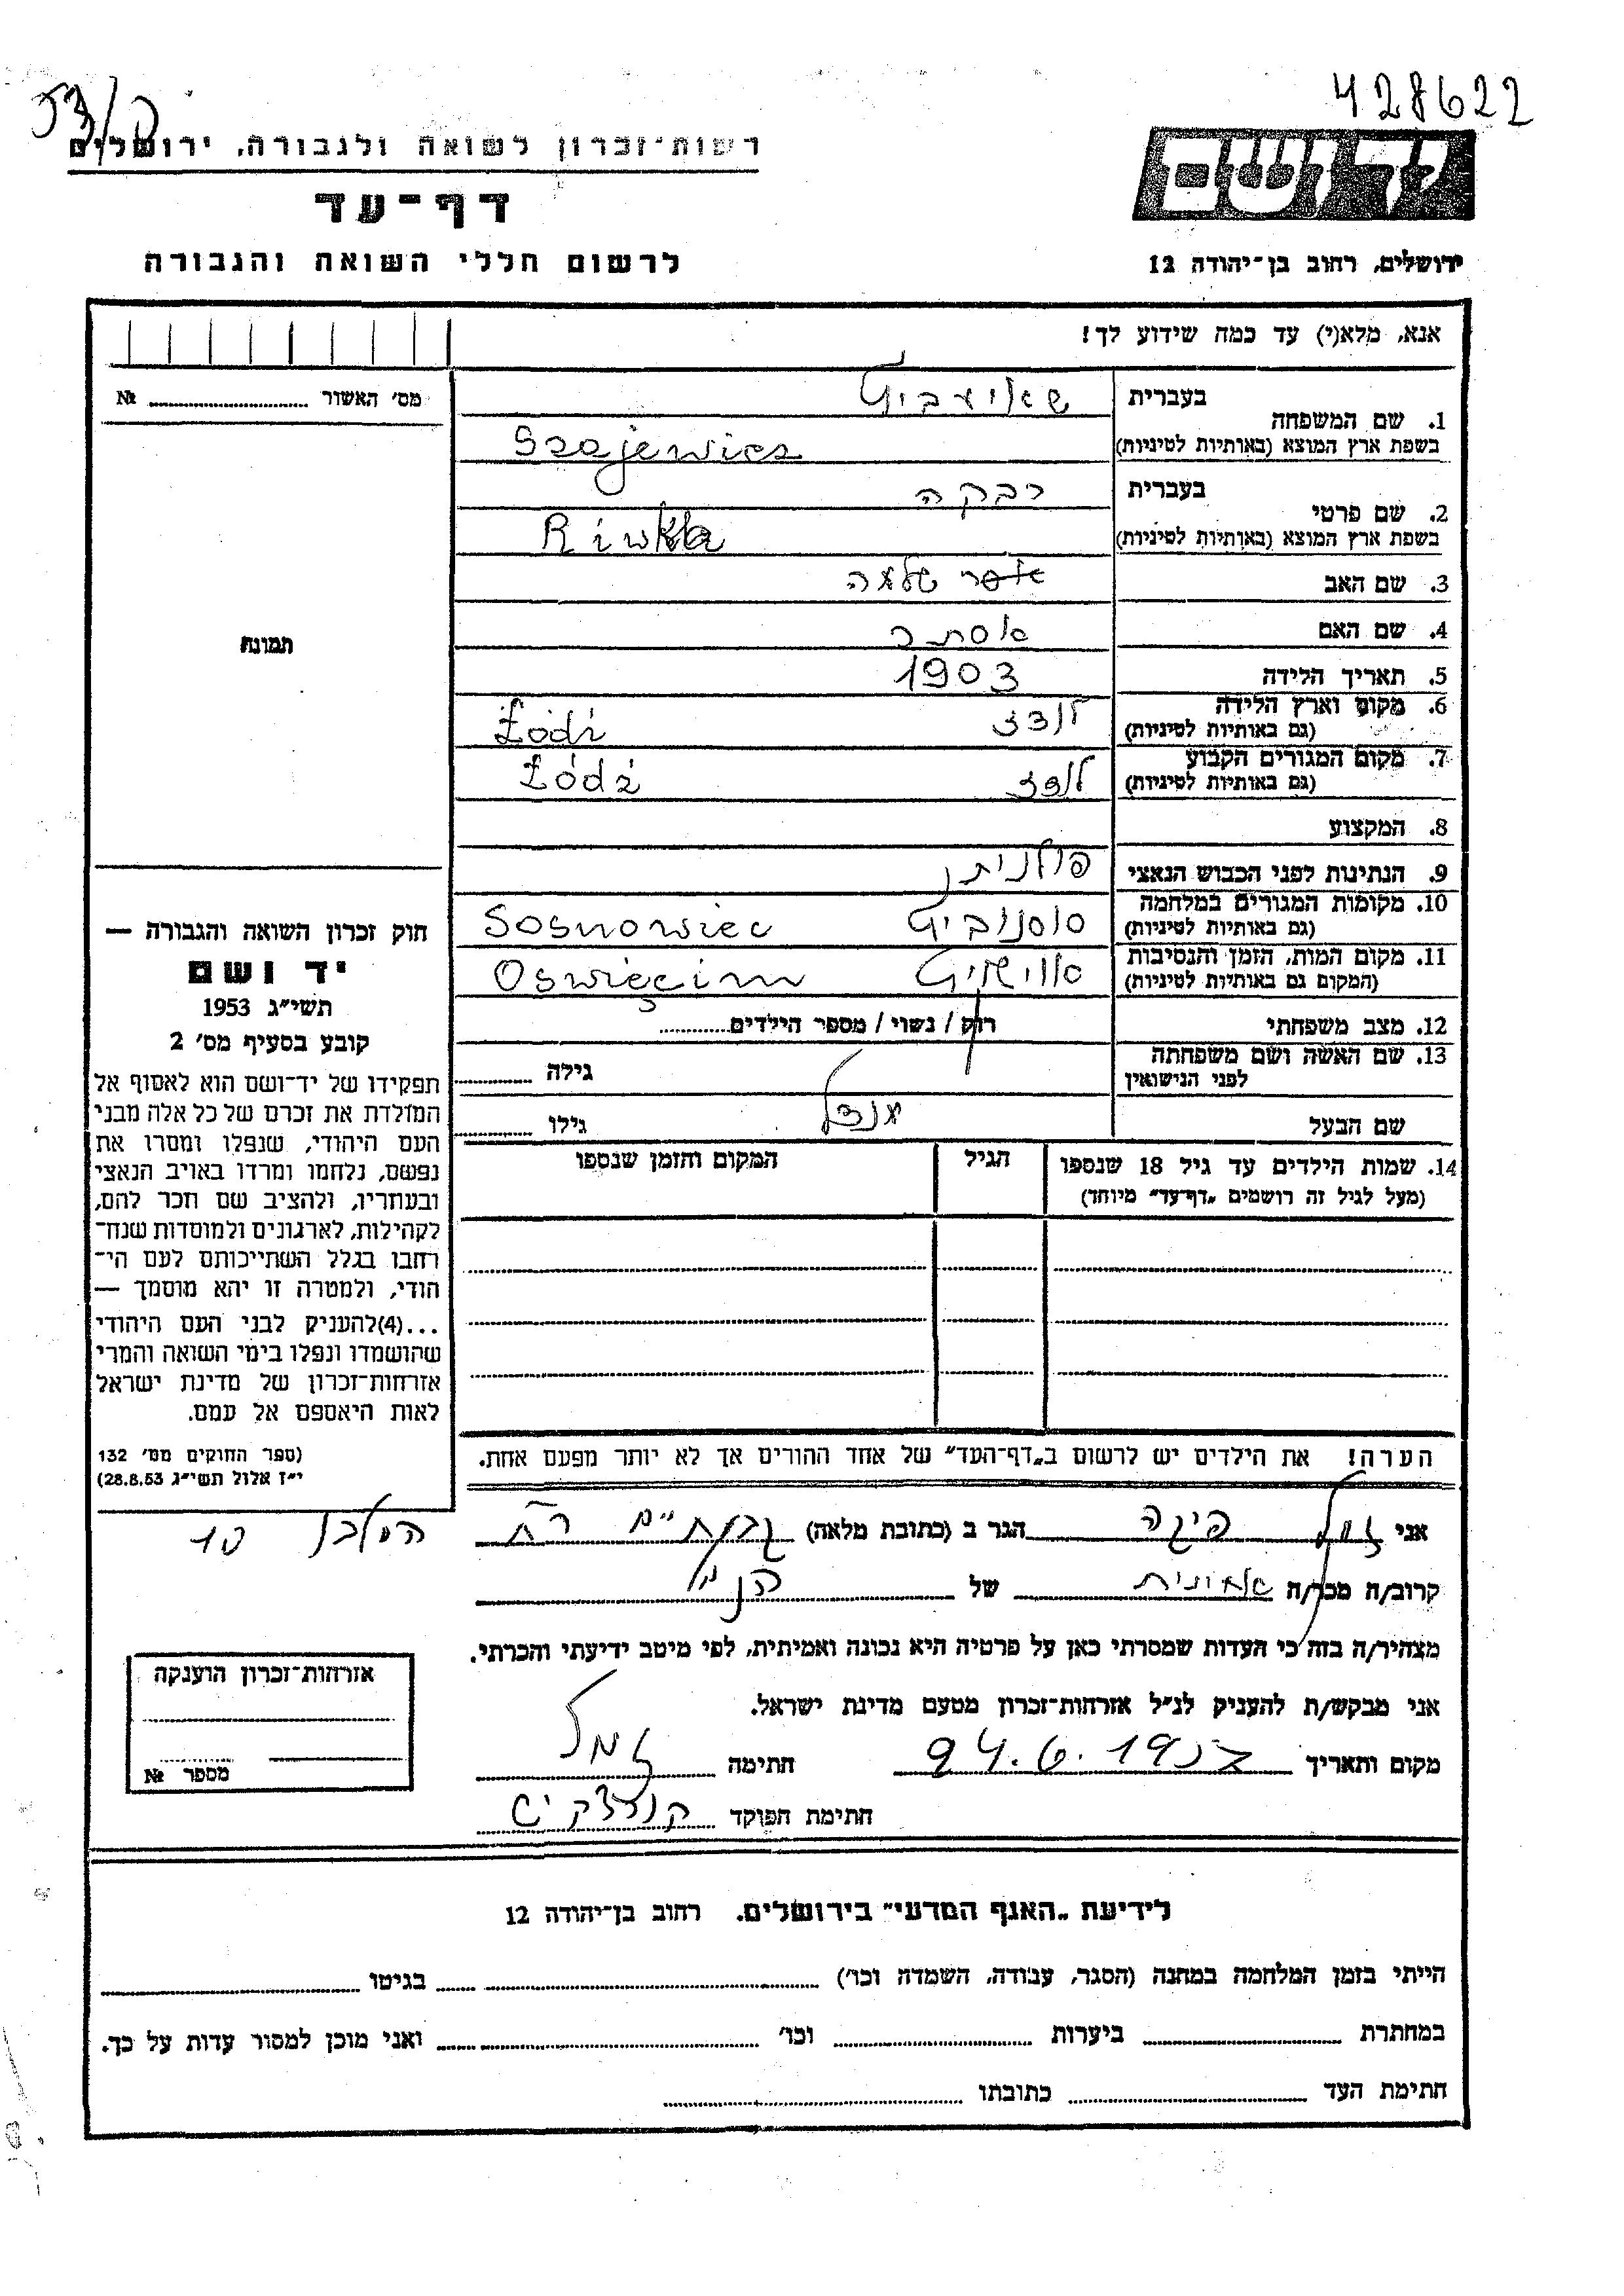 428622
רשות־זכרון לשואה ולגבורה, ירושלים
יד ושם
דף־עד
ירושלים, רחוב בן־יהודה 12
לרשום חללי השואה והגבורה
אנא, מלא(י) עד כמה שידוע לך!
מס׳ האשור № 
1. שם המשפחה
בעברית
בשפת ארץ המוצא (באותיות לטיניות)
Szajewicz
2. שם פרטי
בעברית רבקה
בשפת ארץ המוצא (באותיות לטיניות) Riwka
3. שם האב שלמה
4. שם האם אסתר
5. תאריך הלידה 1903
6. מקום וארץ הלידה
(גם באותיות לטיניות) לודז Łódź
7. מקום המגורים הקבוע
(גם באותיות לטיניות) לודז Łódź
8. המקצוע
9. הנתינות לפני הכבוש הנאצי פולנית
10. מקומות המגורים במלחמה
(גם באותיות לטיניות) סוסנוביץ Sosnowiec
11. מקום המות, הזמן והנסיבות
(המקום גם באותיות לטיניות) Oswięcim
12. מצב משפחתי רווק / נשוי / מספר הילדים
13. שם האשה ושם משפחתה
לפני הנישואין
גילה
שם הבעל
גילו
14. שמות הילדים עד גיל 18 שנספו
(מעל לגיל זה רושמים „דף־עד״ מיוחד)
הגיל
המקום והזמן שנספו
תמונה
חוק זכרון השואה והגבורה —
יד ושם
תשי״ג 1953
קובע בסעיף מס׳ 2
תפקידו של יד־ושם הוא לאסוף אל
המולדת את זכרם של כל אלה מבני
העם היהודי, שנפלו ומסרו את
נפשם, נלחמו ומרדו באויב הנאצי
ובעוזריו, ולהציב שם וזכר להם,
לקהילות, לארגונים ולמוסדות שנח־
רבו בגלל השתייכותם לעם הי־
הודי, ולמטרה זו יהא מוסמך —
...(4) להעניק לבני העם היהודי
שהושמדו ונפלו בימי השואה והמרי
אזרחות־זכרון של מדינת ישראל
לאות היאספם אל עמם.
(ספר החוקים מס׳ 132
י״ז אלול תשי״ג 28.8.53)
הערה! את הילדים יש לרשום ב„דף־העד״ של אחד ההורים אך לא יותר מפעם אחת.
אני פיגה הגר ב (כתובת מלאה) גבעתיים רח 10
קרוב/ה מכר/ה של הנ״ל
מצהיר/ה בזה כי העדות שמסרתי כאן על פרטיה היא נכונה ואמיתית, לפי מיטב ידיעתי והכרתי.
אני מבקש/ת להעניק לנ״ל אזרחות־זכרון מטעם מדינת ישראל.
מקום ותאריך חתימה
חתימת הפוקד
אזרחות־זכרון הוענקה
מספר №
לידיעת „האגף המדעי״ בירושלים, רחוב בן־יהודה 12
הייתי בזמן המלחמה במחנה (הסגר, עבודה, השמדה וכו׳) בגיטו
במחתרת ביערות וכו׳ ואני מוכן למסור עדות על כך.
חתימת העד כתובתו